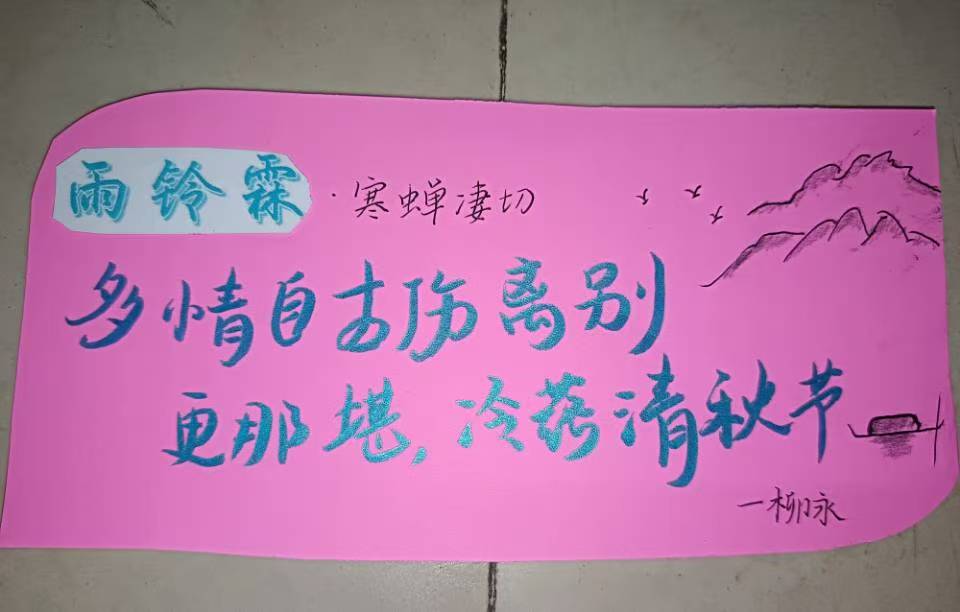 雨铃霖·寒蝉凄切
多情自古伤离别
更那堪,冷落清秋节
—柳永